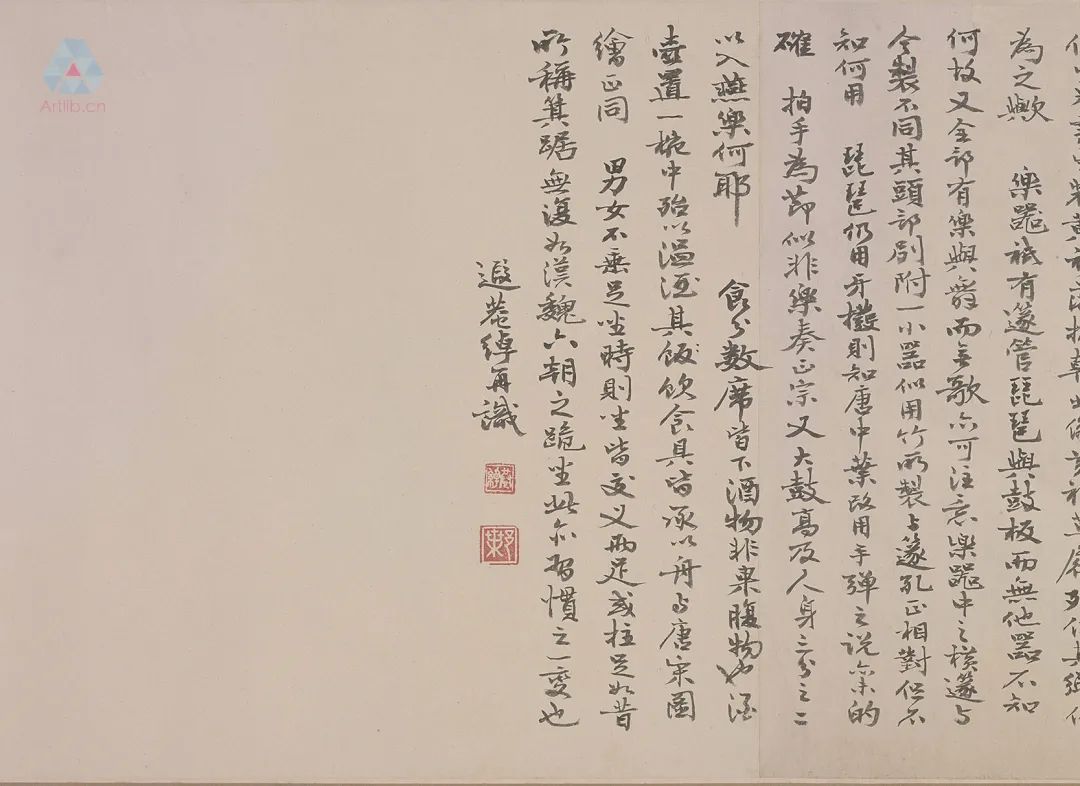 為之歟　樂器祇有篴管琵琶與鼓板而無他器不知
何故又全部有樂與舞而無歌亦可注意樂器中之橫篴与
今製不同其頭部別附一小器似用竹所製与篴孔正相對但不
知何用　琵琶仍用牙撥則知唐中葉改用手彈之说亦未的
確　拍手為節似非樂奏正宗又大鼓高及人身三分之二
以入燕樂何耶　食分數席皆下酒物非果腹物也酒
壺置一椀中殆以溫酒其飯飲食具皆承以舟与唐宋圖
繪正同　男女不垂足坐時則坐皆交叉兩足或拄足如昔
所稱箕踞無復如漢魏六朝之跪坐此亦習慣之一變也
遐菴綽再識
Artlib.cn